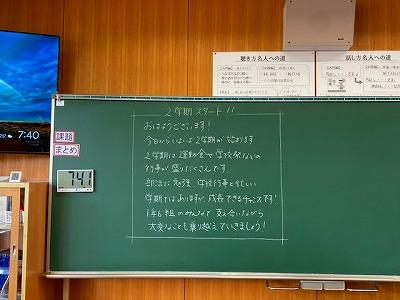 7:40
聴き方名人への道
話し方名人への道
課題
まとめ
741
2学期スタート!!
おはようございます!
今日からいよいよ2学期が始まります
2学期は運動会や学校祭などの
行事が盛りだくさんです
部活に勉強、学校行事と忙しい
学期ではありますが、成長できるチャンスです!
1年6組のみんなで支え合いながら
大変なことも乗り越えていきましょう!